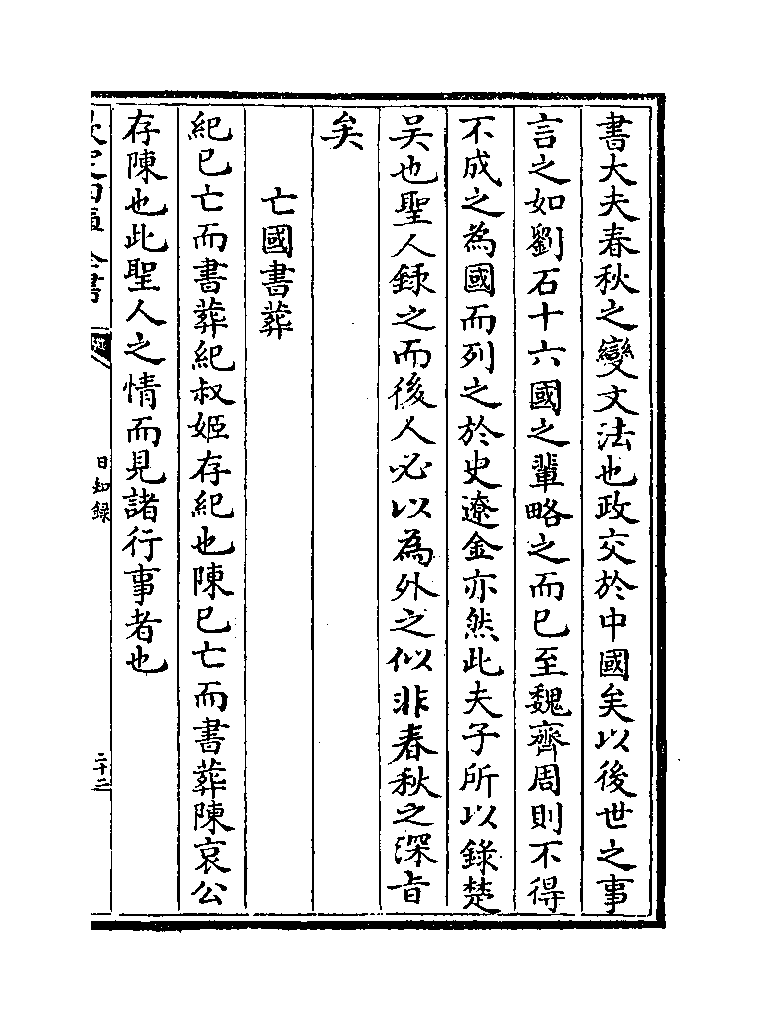 書大夫春秋之變文法也政交於中國矣以後世之事
言之如劉石十六國之輩略之而已至魏齊周則不得
不成之為國而列之於史遼金亦然此夫子所以錄楚
吳也聖人錄之而後人必以為外之似非春秋之深旨
矣
亡國書葬
紀已亡而書葬紀叔姬存紀也陳已亡而書葬陳哀公
存陳也此聖人之情而見諸行事者也
日知錄
二十二